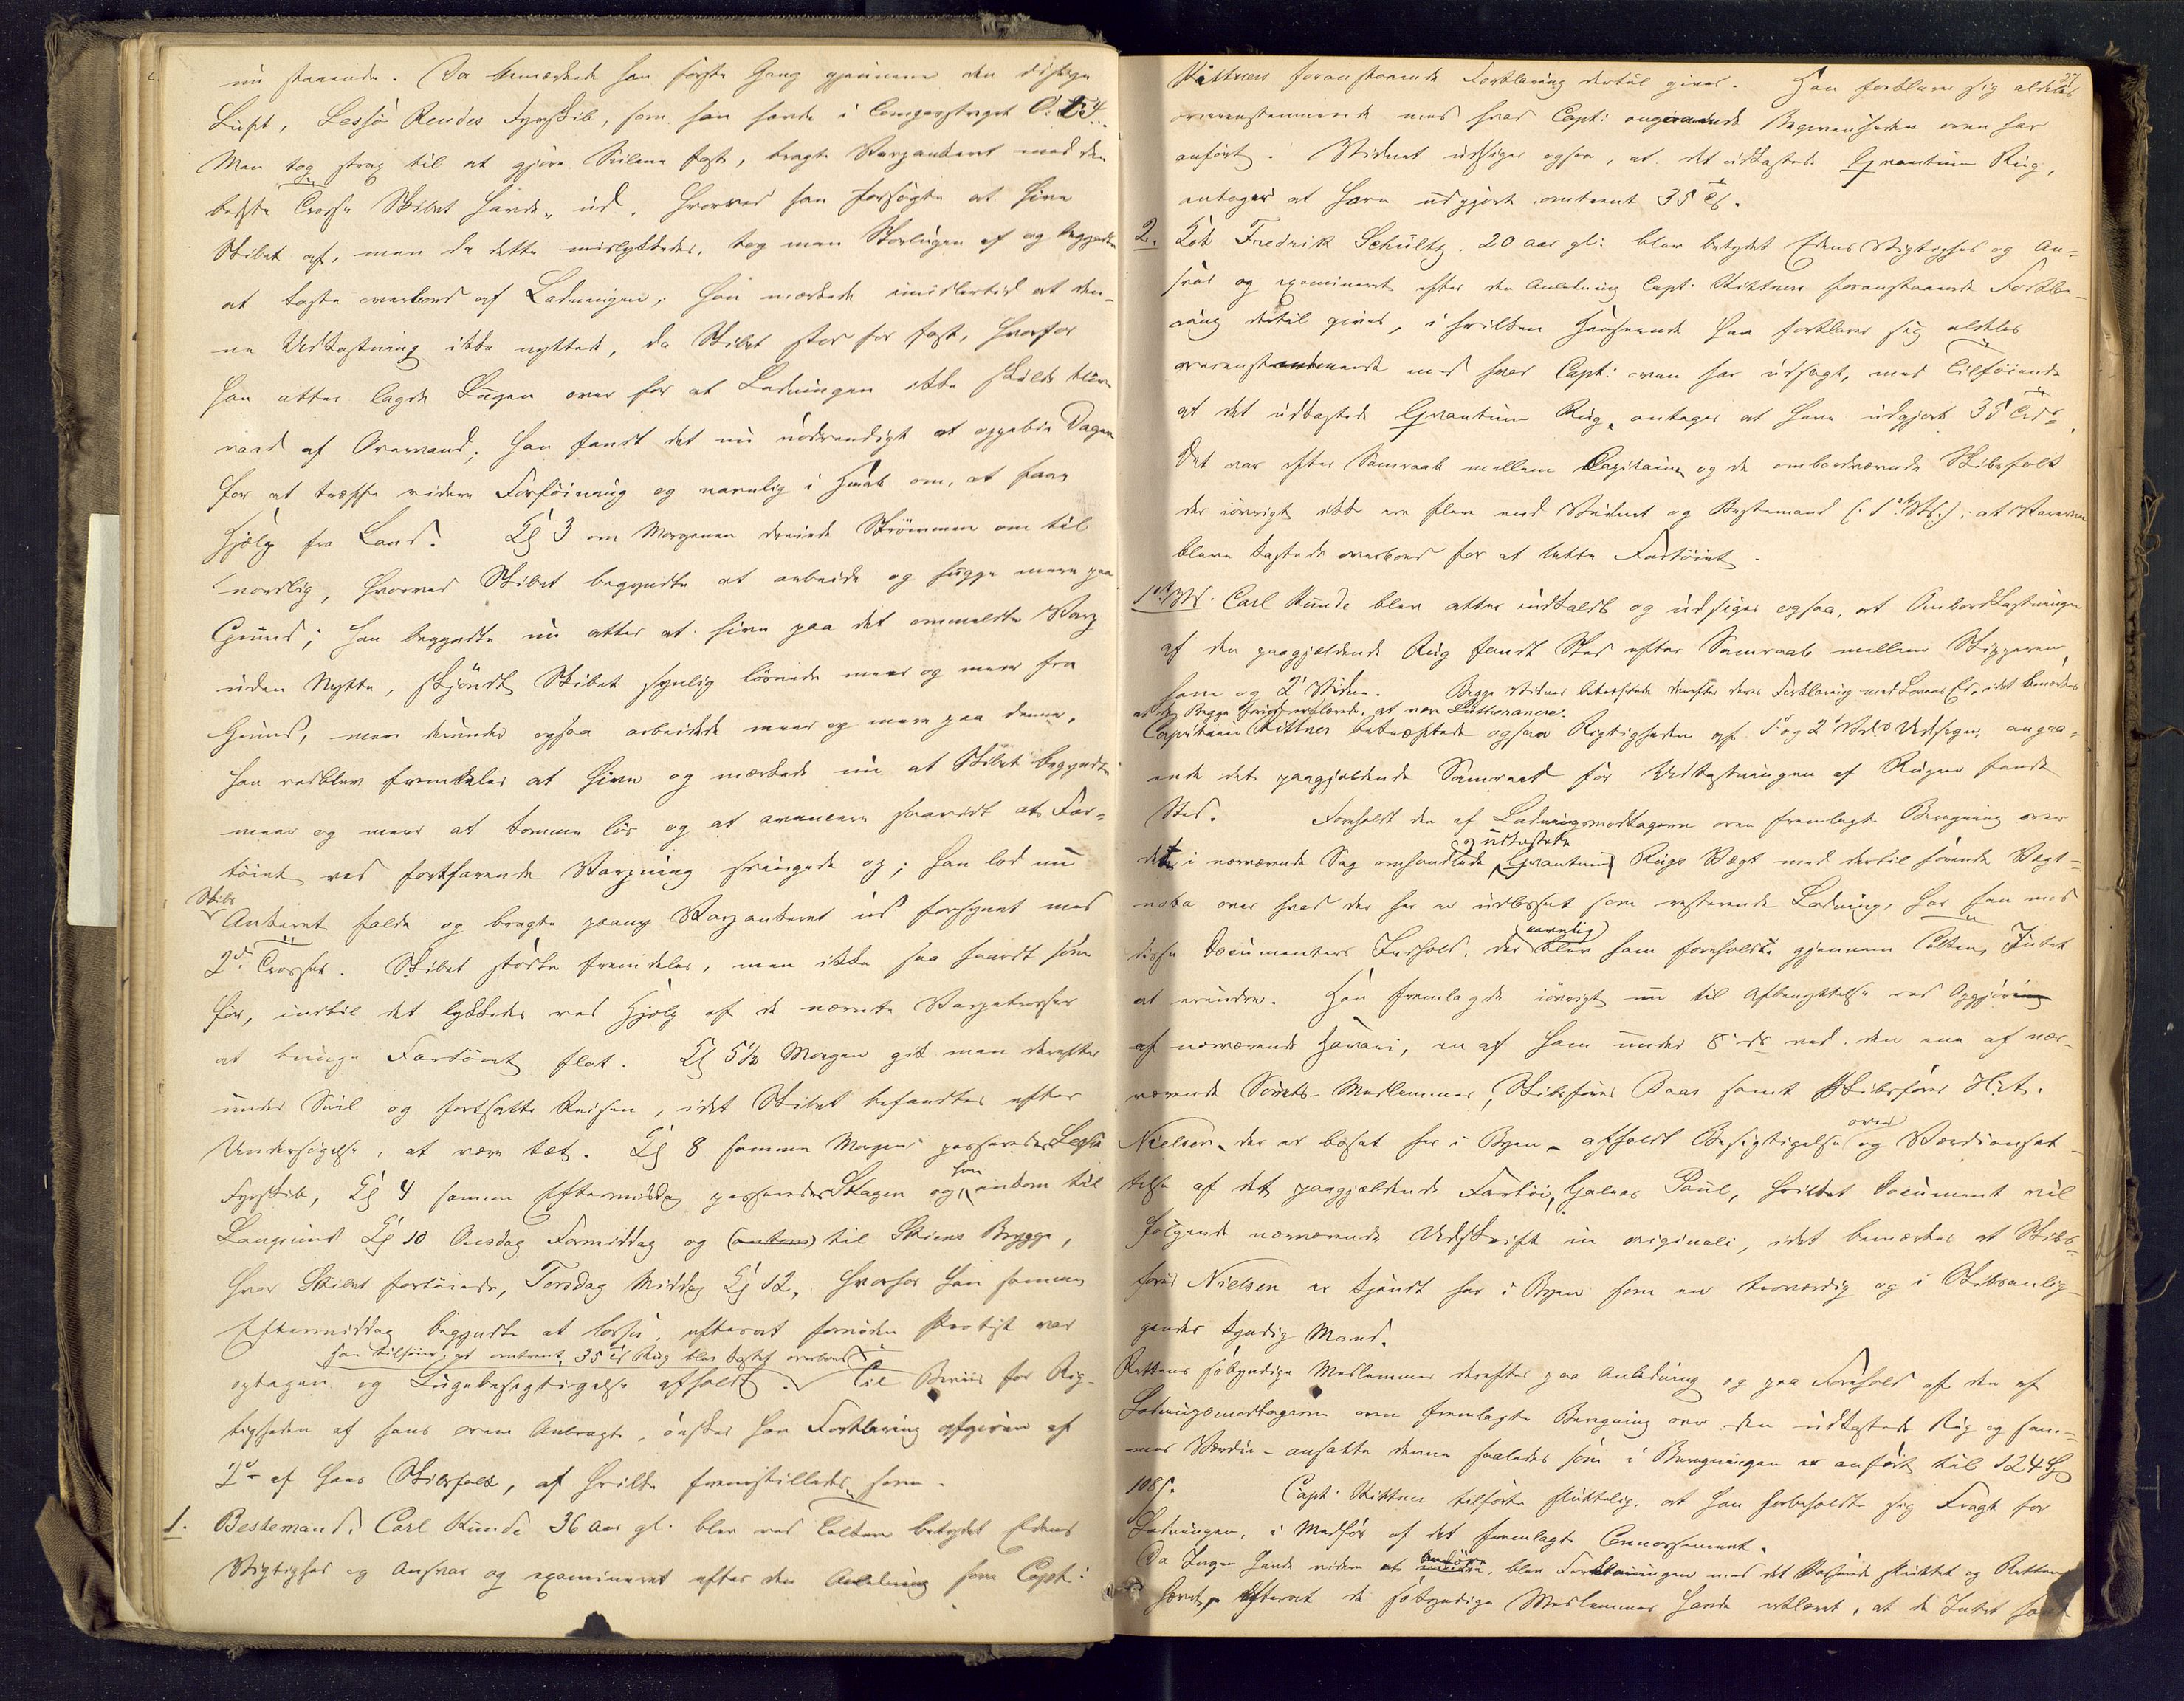 nu staaende. Da bemærkede han første Gang gjennem den disige
Luft, Lessø Rendes Fyrskib, som han havde i Compasstreget
Man tog strax til at gjøre Seilene fast, bragte Varpankeret med den
bedste Trosse Skibet havde, ud, hvorved han forsøgte at hive
Skibet af, men da dette mislykkedes, tog man Storlugen af og begyndte
at kaste overbord af Ladningen; han mærkede imidlertid at den-
ne Udkastning ikke nyttede, da Skibet stod for fast, hvorfor
han atter lagde Lugen over for at Ladningen ikke skulde blive
vaad af Overvand; han fandt det nu nødvendigt at oppebie Dagen
for at træffe videre Forføining og navnlig i Haab om, at faae
Hjælp fra Land. Kl 3 om Morgenen dreiede Strømmen om til
nordlig, hvorved Skibet begyndte at arbeide og hugge mere paa
Grund; han begyndte nu atter at hive paa det ommeldte Varp
uden Nytte, skjøndt Skibet synlig løsnede meer og meer fra
Grund, men derunder ogsaa arbeidede meer og mere paa denne,
han vedblev fremdeles at hive og mærkede nu at Skibet begyndte
meer og meer at komme løs og at avancere saavidt at Far-
tøiet ved fortsarende Varpning svingede op; han lod nu
Skibs
Ankeret falde og bragte paany Varpankeret ud forsynet med
2de Trosser. Skibet stødte fremdeles, men ikke saa haardt som
før, indtil det lykkedes ved Hjælp af de nævnte Varpetrosser
at bringe Fartøiet flot. Kl 5½ Morgen gik man derefter
under Seil og fortsatte Reisen, idet Skibet befandtes efter
Undersøgelse, at være tæt. Kl 8 samme Morgen passeredes Lessø
Fyrskib, Kl 4 samme Eftermiddag passeredes Skagen og han ankom til
Langesund Kl 10 Onsdag Formiddag og (ankom) til Skiens Brygge,
hvor Skibet fortøiede, Torsdag Middag Kl 12, hvorfor han samme
Eftermiddag begyndte at losse, efterat fornøden Protest var
han tilføier, at omtrent 35 Ctr Rug blev kastet overbord
optagen og Lugebesigtigelse afholdt. Til Beviis for Rig-
tigheden af hans oven Anbragte, ønsker han Forklaring afgiven af
2de af hans Skibsfolk, af hvilke fremstillede som
1. Bestemand Carl Kunde 36 Aar gl. blev ved Tolken betydet Edens
Vigtighed og Ansvar og examineret efter den Anledning som Capt:
27
Kittners foranstaaende Forklaring dertil giver. Han forklarer sig aldeles
overensstemmende med hvad Capt: angivende Begivenheden oven har
anført. Vidnet udsiger ogsaa, at det udkastede Qvantum Rug,
antages at have udgjort omtrent 35 Ctr.
2. Kok Fredrik Schultz, 20 aar gl: blev betydet Edens Vigtighed og An-
svar og examineret efter den Anledning Capt. Kittners foranstaaende Forkla-
ring dertil giver, i hvilken Henseende han forklarer sig aldeles
overensstemmende med hvad Capt: oven har udsagt, med Tilføiende
at det udkastede Qvantum Rug, antages at have udgjort 35 Ctr.
Det var efter Samraad mellem Capitainen og de ombordværende Skibsfolk
der iøvrigt ikke ere flere end Vidnet og Bestemand (: 1ste Vd:) at Varerne
bleve kastede overbord for at lette Fartøiet.
1ste Vd. Carl Kunde blev atter indkaldt og udsiger ogsaa, at Ombordkastningen
af den paagjældende Rug fandt Sted efter Samraad mellem Skipperen,
ham og 2det Vidne. Begge Vidner bekræftede derefter deres Forklaring med Lovens Ed, idet bemærkes
at de Begge forud erklærede, at være Lutheranere.
Capitain Kittner bekræftede ogsaa Rigtigheden af 1ste og 2det Vd.s Udsagn, angaa-
ende det paagjældende Samraad før Udkastningen af Rugen fandt
Sted. Foreholdt den af Ladningsmodtageren oven fremlagte Beregning over
og udkastede
det i nærværende Sag omhandlede Qvantum Rugs Vægt med dertil hørende Vægt-
nota over hvad der her er udlosset som resterende Ladning, har han mod
(navnlig)
disse Documenters Indhold, der blev ham foreholdte gjennem Tolken, Intet
at erindre. Han fremlagde iøvrigt nu til Afbenyttelse ved Opgjøring
af nærværende Havari, en af ham under 8de ds ved den ene af nær-
værende Søretts-Medlemmer, Skibsfører Baas samt Skibsfører H.t.
over
Nielsen, der er bosat her i Byen - afholdt Besigtigelse og Værdiansæt-
telse af det paagjældende Fartøi, Galeas Paul, hvilket Document vil
følgende nærværende Udskrift in originali, idet bemærkes at Skibs-
fører Nielsen er kjendt her i Byen som en troværdig og i Skibsanlig-
gender kyndig Mand.
Rettens søkyndige Medlemmer derefter paa Anledning og paa Forehold af den af
Ladningsmodtageren oven fremlagte Beregning over den udkastede Rug og sam-
mes Værdie - ansatte denne saaledes som i Beregningen er anført til 124
108 s. Capt. Kittner tilførte sluttelig, at han forbeholdt sig Fragt for
Ladningen, i Medfør af det fremlagte Connossement.
Da Ingen havde videre at anføre, blev Forklaringen med det Passerede sluttet og Retten
hævet, efterat de søkyndige Medlemmer havde erklæret, at de Intet havde